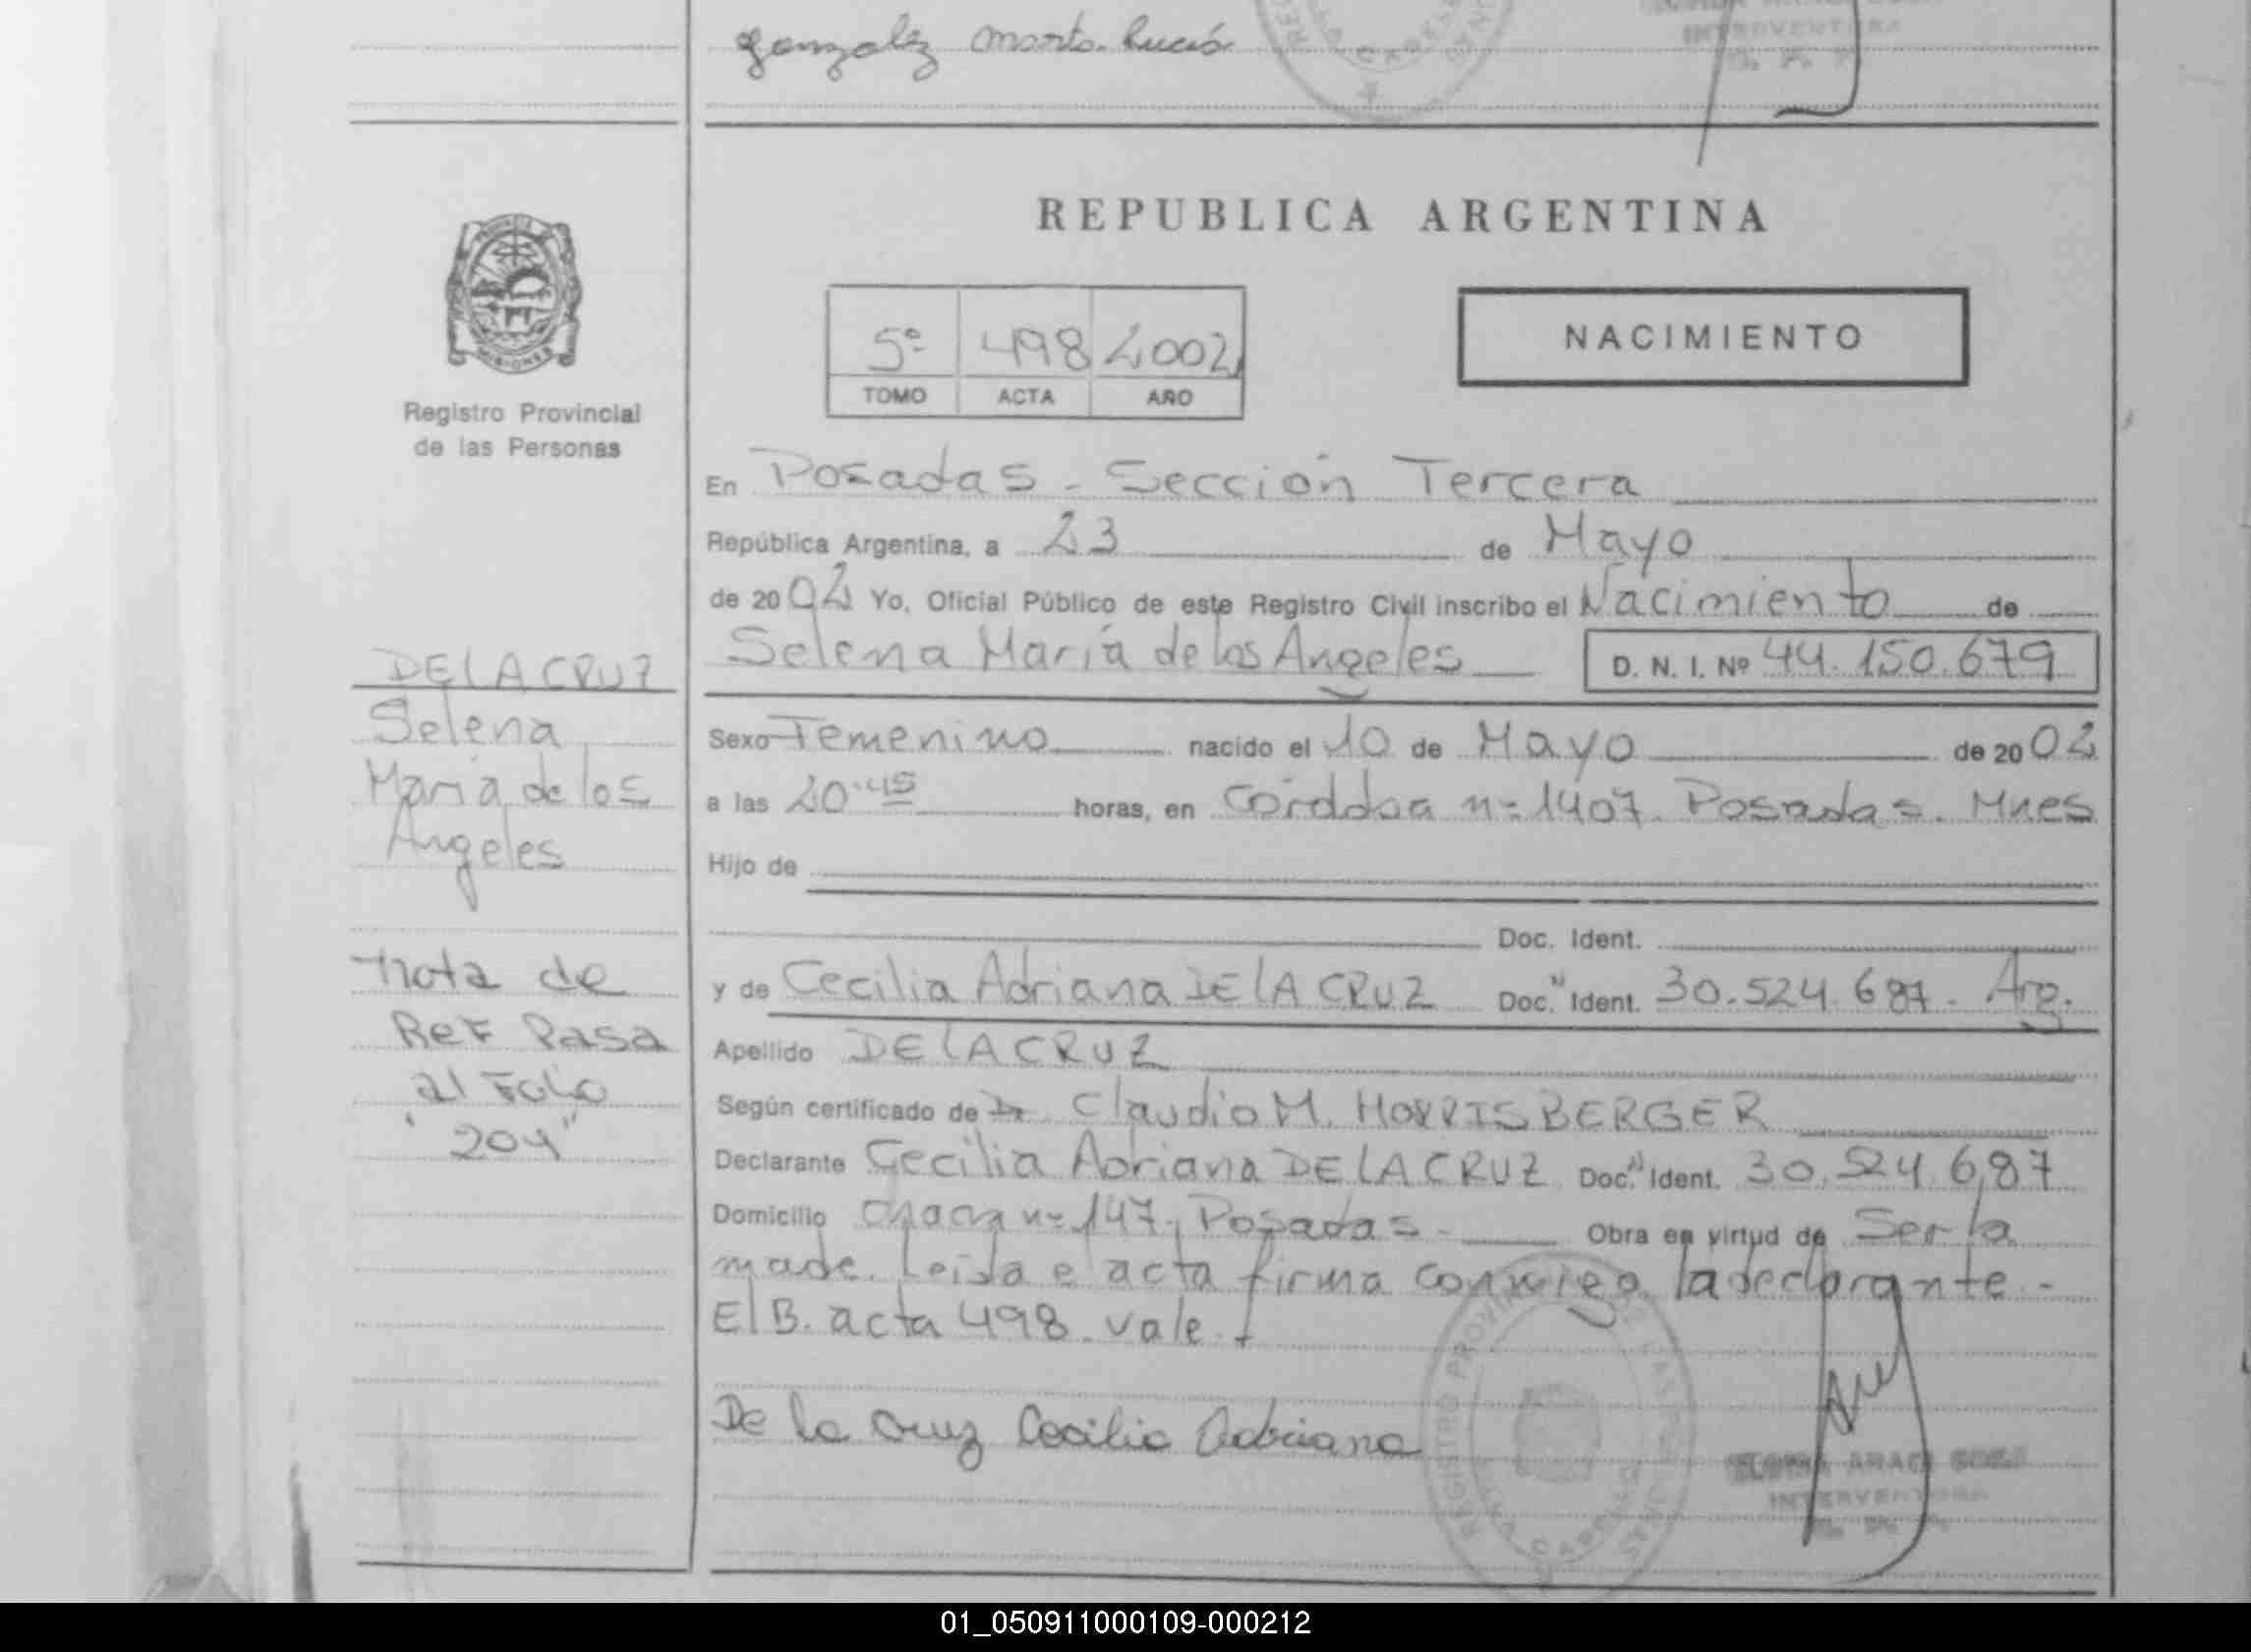 gonzalez Marta Lucia
INTERVENTORA
REPUBLICA ARGENTINA
MISIONES
Registro Provincial
de las Personas
5º 498 2002
TOMO ACTA AÑO
NACIMIENTO
En Posadas - Sección Tercera
República Argentina, a 23 de Mayo
de 2002 Yo, Oficial Público de este Registro Civil inscribo el Nacimiento de
Selena María de los Angeles D. N. I. Nº 44.150.679
DE LA CRUZ
Selena
María de los
Angeles
Nota de
Ref Pasa
al Folio
"204"
Sexo Femenino nacido el 10 de Mayo de 2002
a las 20.45 horas, en Córdoba nº 1407. Posadas. Mnes
Hijo de
Doc. Ident.
y de Cecilia Adriana DE LA CRUZ Doc. Ident. 30.524.687. Arg.
Apellido DE LA CRUZ
Según certificado de Dr Claudio M. HORRISBERGER
Declarante Cecilia Adriana DE LA CRUZ Doc. Ident. 30.524.687
Domicilio nº 147, Posadas - Obra en virtud de Ser la
made. Leída e acta firma conmigo la declarante -
E/B. acta 498. vale.
De la Cruz Cecilia Adriana
REGISTRO PROVINCIAL DE LAS PERSONAS
INTERVENTORA
01_050911000109-000212